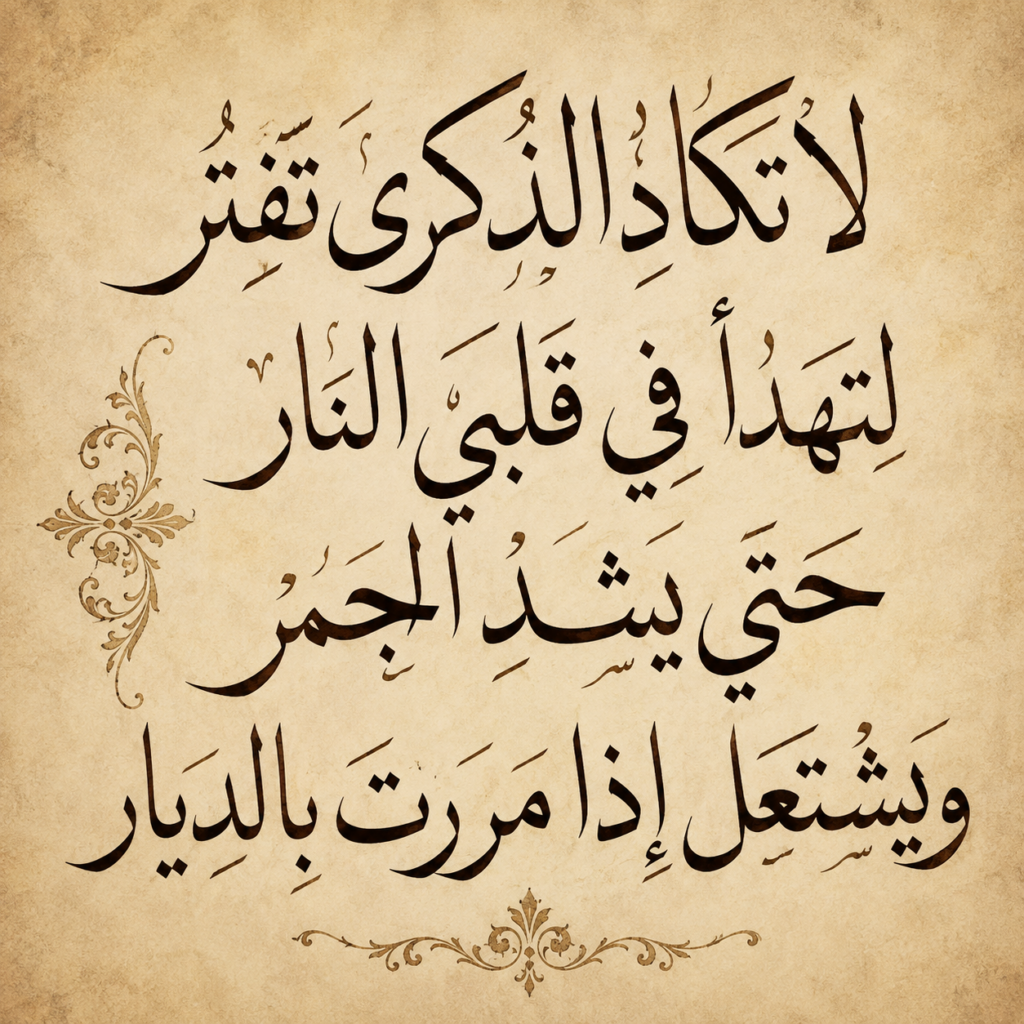 لا تكاد الذكرى تفتر
لتهدأ في قلبي النار
حتى يشد الجمر
ويشتعل إذا مررت بالديار